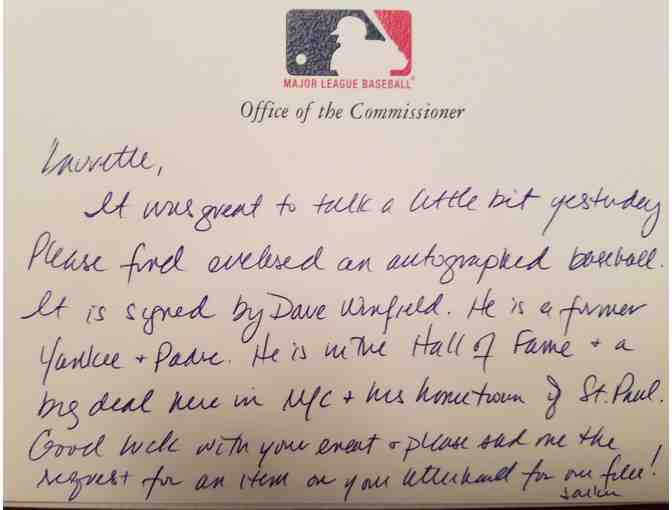 MAJOR LEAGUE BASEBALL®
Office of the Commissioner
Laurette,
It was great to talk a little bit yesterday
Please find enclosed an autographed baseball.
It is signed by Dave Winfield. He is a former
Yankee + Padre. He is in the Hall of Fame + a
big deal here in NYC + his hometown of St. Paul.
Good luck with your event + please send me the
request for an item on your letterhead for our files!